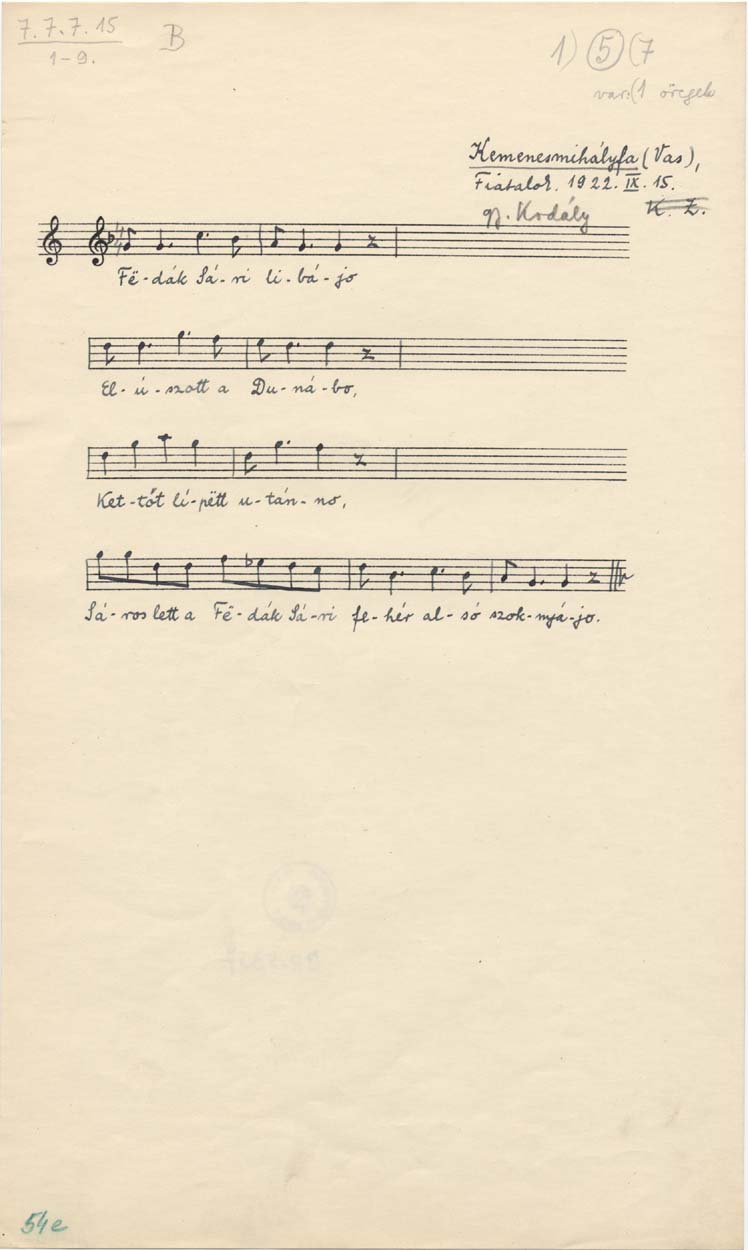 7.7.7.15
1-9.
B
1) 5 (7
var: (1 öregek
Kemenesmihályfa (Vas),
Fiatalok. 1922. IX. 15.
gy. Kodály K. Z.
Fë-dák Sá-ri li-bá-jo
El-ú-szott a Du-ná-bo,
Ket-tőt lí-pëtt u-tán-no,
Sá-ros lett a Fë-dák Sá-ri fe-hér al-só szok-nyá-jo.
54e